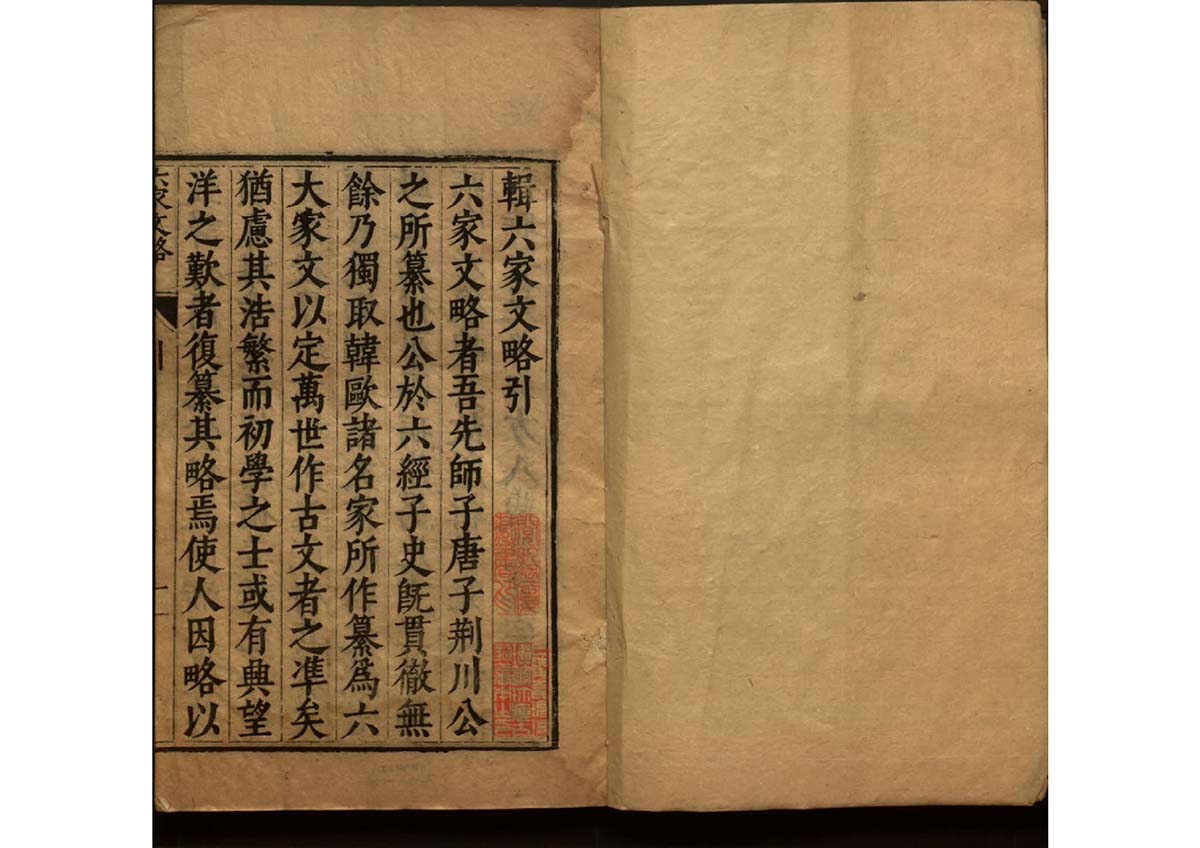 輯六家文略引
六家文略者吾先師子唐子荆川公
之所纂也公於六經子史旣貫徹無
餘乃獨取韓歐諸名家所作纂爲六
大家文以定萬世作古文者之凖矣
猶慮其浩繁而初學之士或有典望
洋之歎者復纂其略焉使人因略以
六家文略